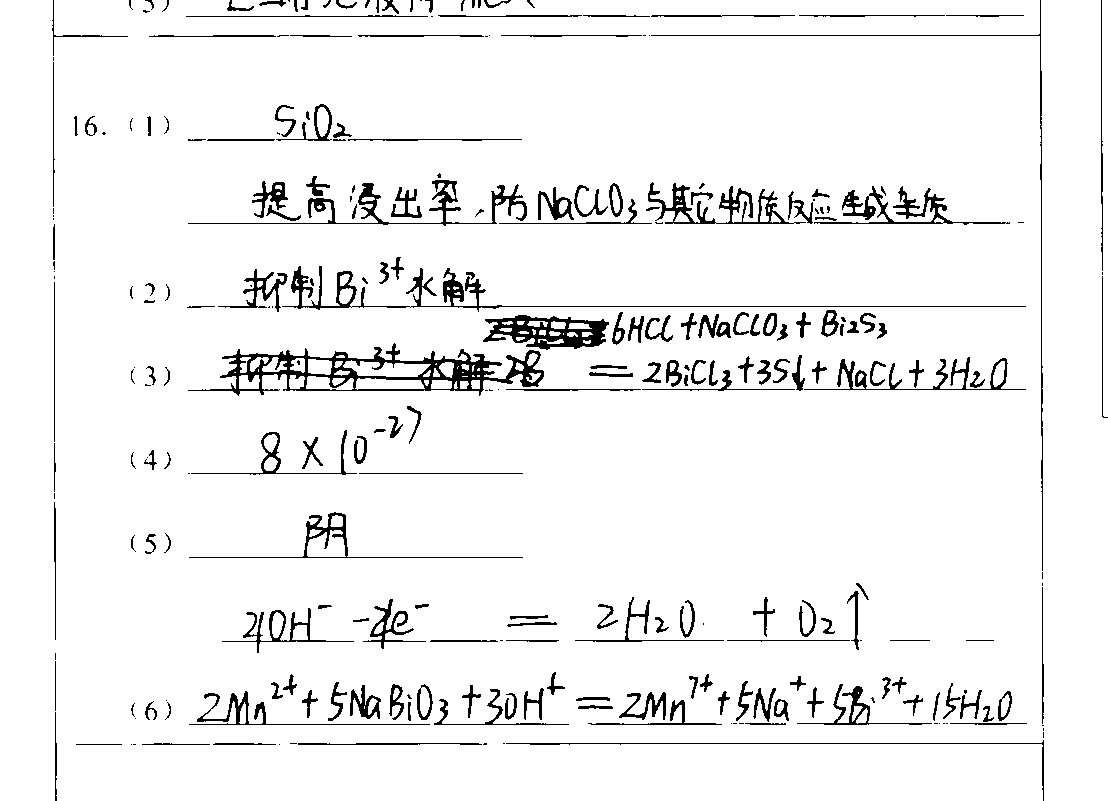 (3)
16. (1) SiO₂
提高浸出率,防NaClO₃与其它物质反应生成杂质
(2) 抑制Bi³⁺水解
6HCl+NaClO₃+Bi₂S₃
(3) 抑制Bi³⁺水解 = 2BiCl₃+3S↓+NaCl+3H₂O
(4) 8×10⁻²⁷
(5) 阴
4OH⁻-4e⁻ = 2H₂O + O₂↑
(6) 2Mn²⁺+5NaBiO₃+30H⁺=2Mn⁷⁺+5Na⁺+5Bi³⁺+15H₂O